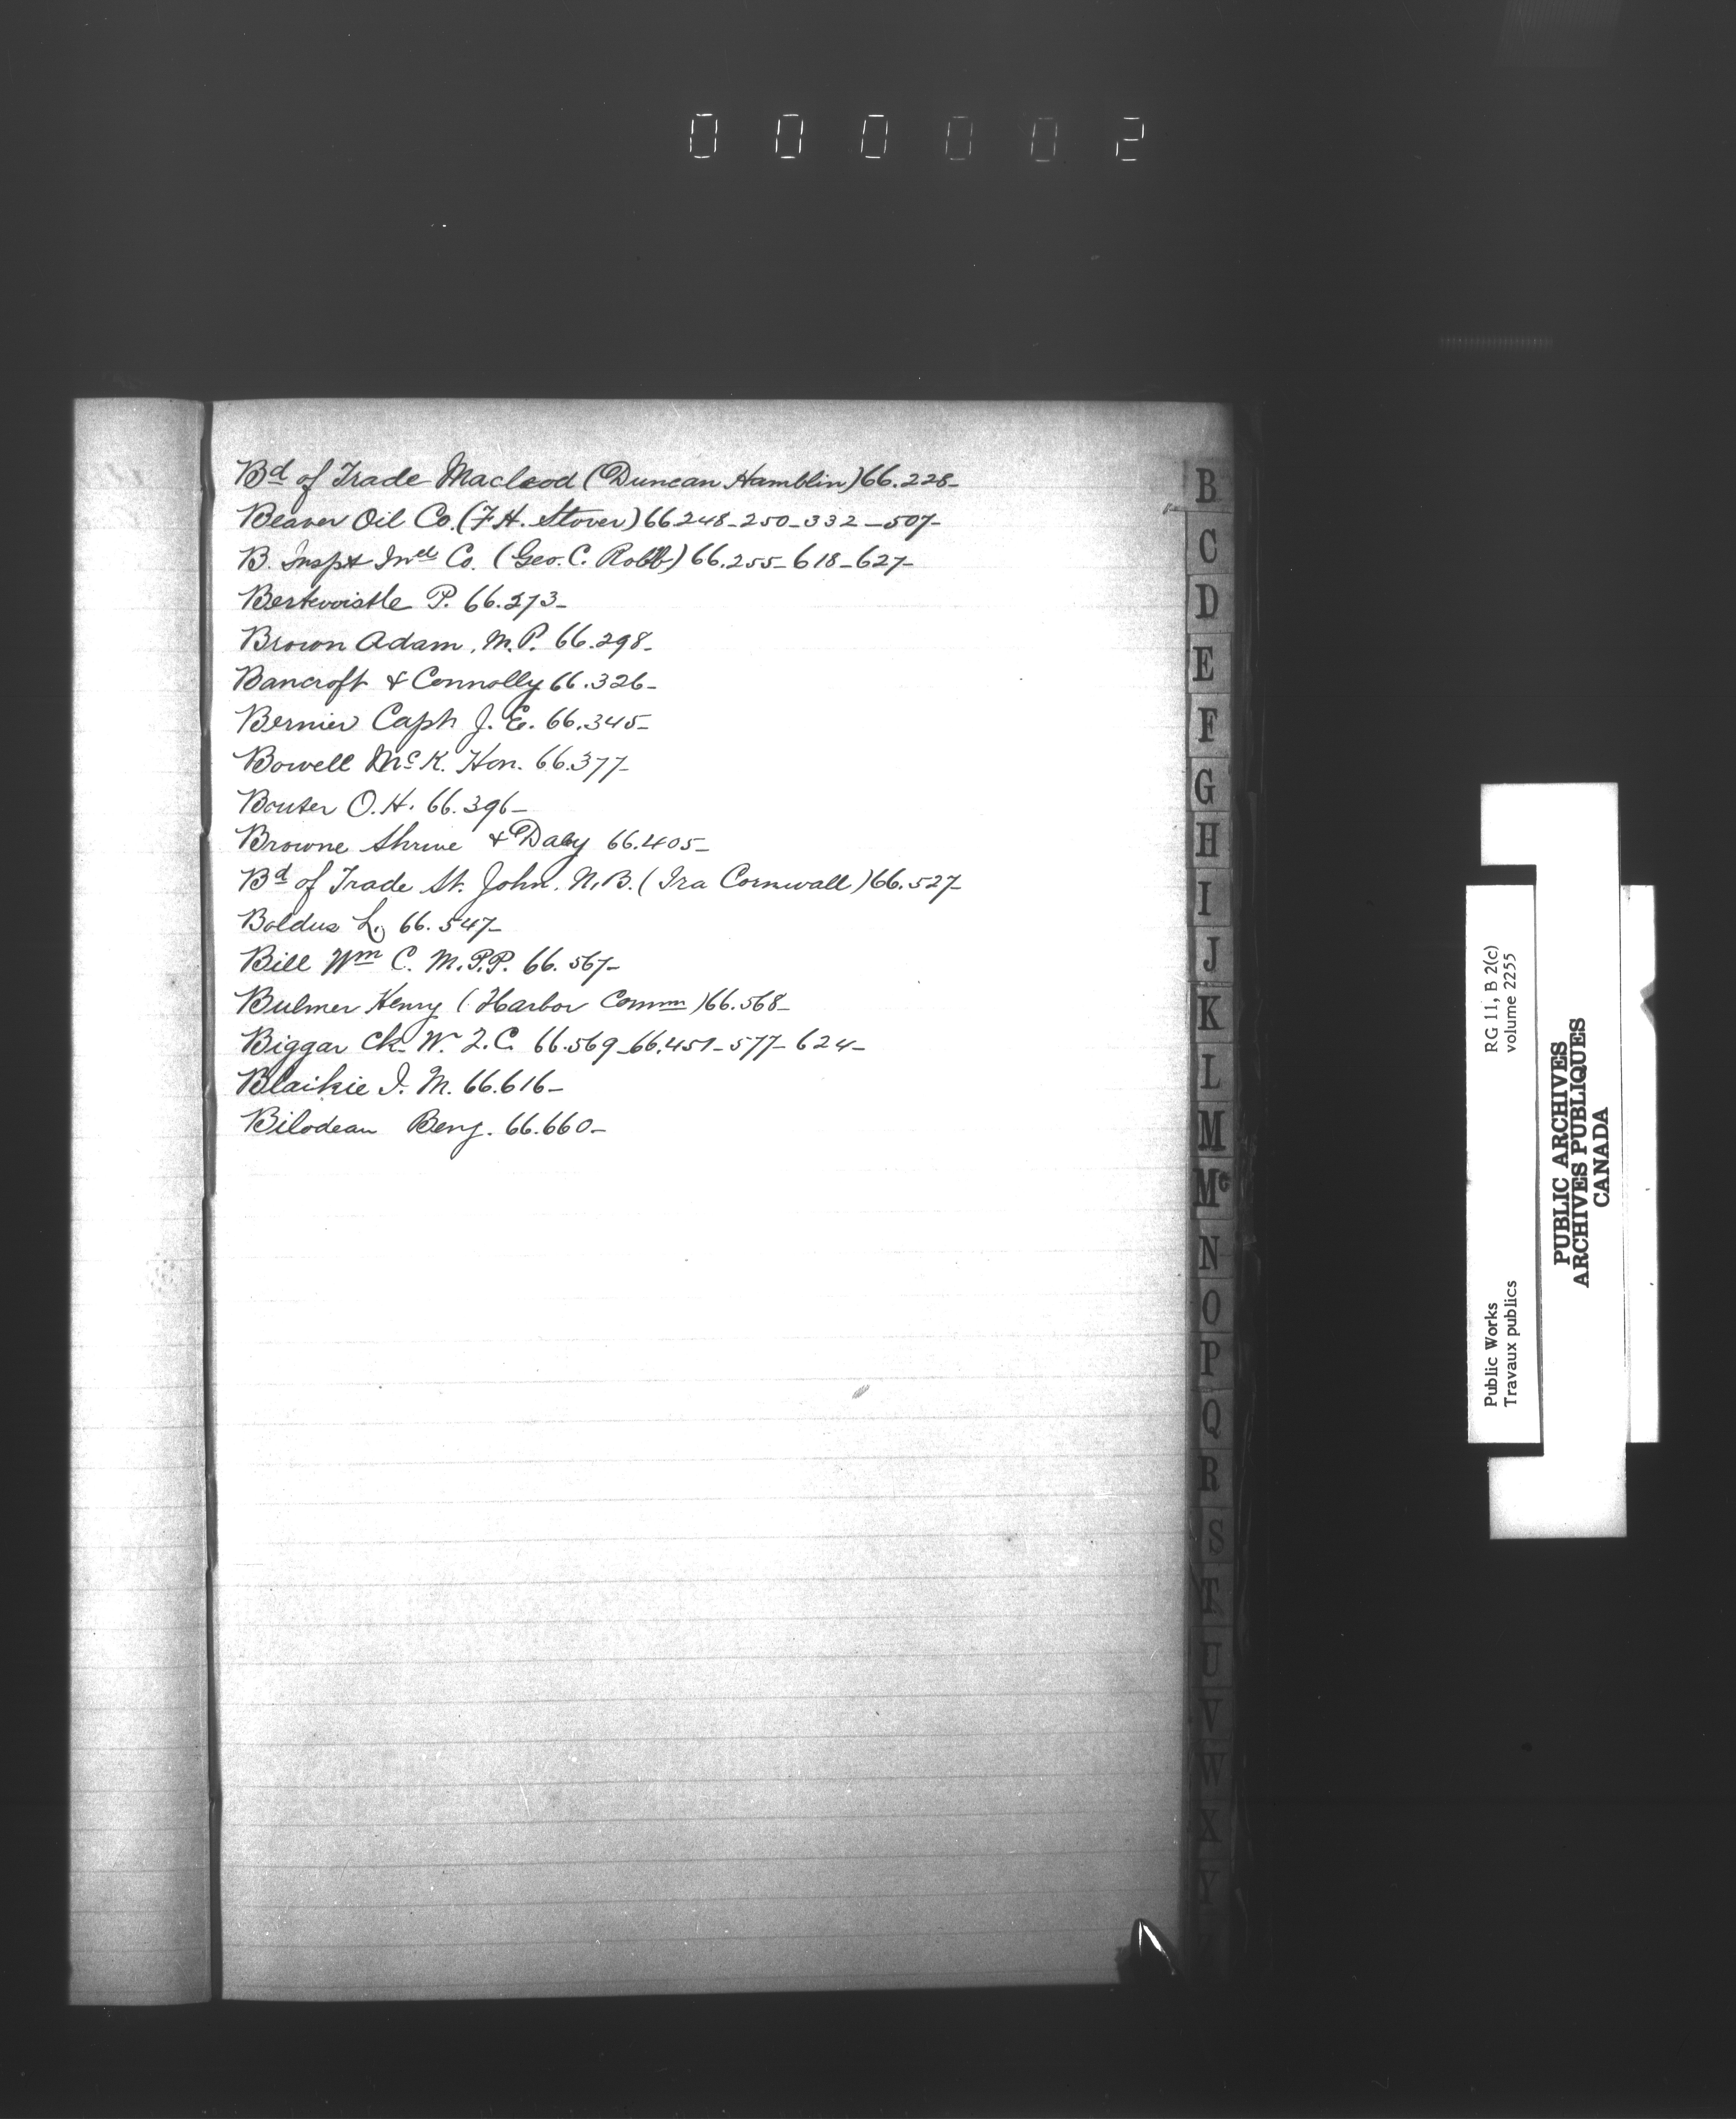 000002
Bd of Trade Macleod (Duncan Hamblin) 66.228-
Beaver Oil Co. (F.H. Stover) 66248-250-332-507-
B. Inspt Ined Co. (Geo. C. Robb) 66.255-618-627-
Bertwoistle P. 66.273-
Brown Adam, M.P. 66.298-
Bancroft & Connolly 66.326-
Bernier Capt J. E. 66.345-
Bowell McK. Hon. 66.377-
Bouter O.H. 66.396-
Browne Shrive & Daby 66.405-
Bd of Trade St. John. N.B. (Ira Cornwall) 66.527-
Boldus L. 66.547-
Bill Wm C. M.P.P. 66.567-
Bulmer Henry (Harbor Comm) 66.568-
Biggar Ck. W. Z.C. 66.569-66.451-577-624-
Blaikie J. M. 66.616-
Bilodeau Benj. 66.660-
B
C
D
E
F
G
H
I
J
K
L
M
Mc
N
O
P
Q
R
S
T
U
V
W
X
Y
RG 11, B 2(c)
volume 2255
Public Works
Travaux publics
PUBLIC ARCHIVES
ARCHIVES PUBLIQUES
CANADA